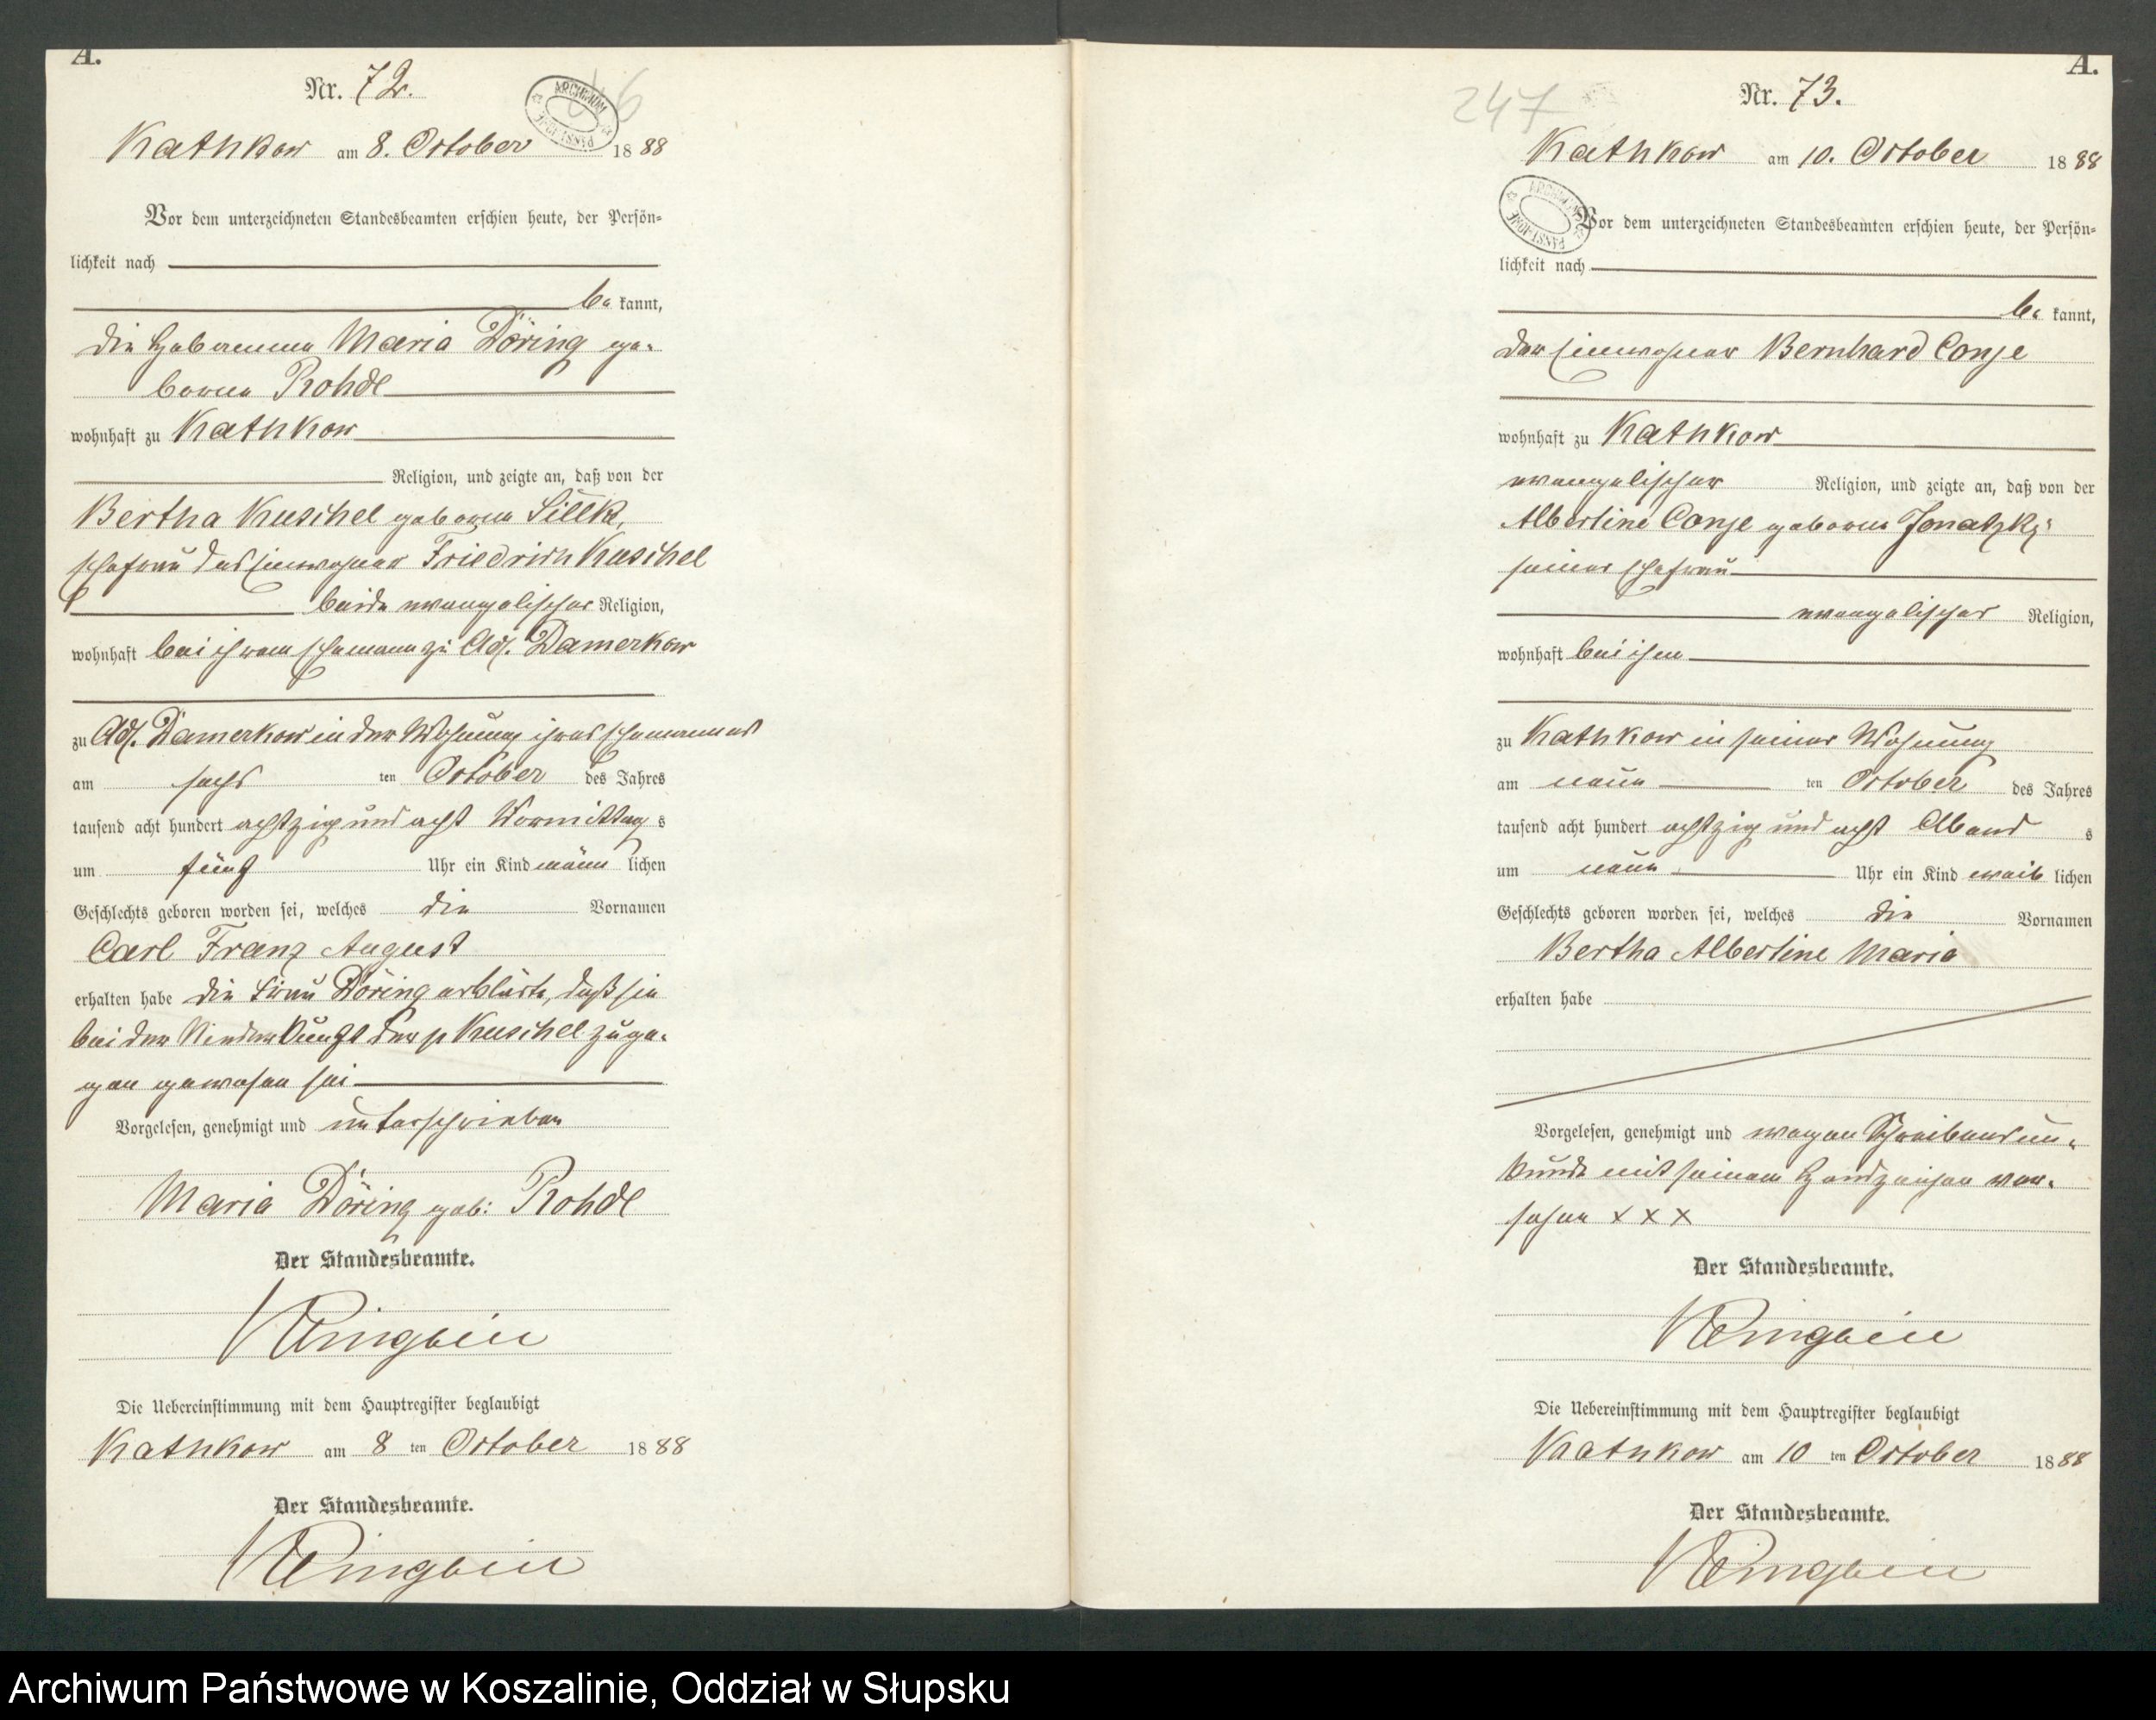 A.
Nr. 72.
Kathkow am 8. October 1888
Vor dem unterzeichneten Standesbeamten erschien heute, der Persön-
lichkeit nach
be kannt,
die Hebamme Maria Döring ge-
borene Rohde
wohnhaft zu Kathkow
Religion, und zeigte an, daß von der
Bertha Kuschel geborene
Ehefrau des Einwohner Friedrich Kuschel
beide evangelischer Religion,
wohnhaft bei ihrem Ehemann zu Adl. Damerkow
zu Adl. Damerkow in der Wohnung ihres Ehemannes
am sechs ten October des Jahres
tausend acht hundert achtzig und acht Vormittag s
um fünf Uhr ein Kind männ lichen
Geschlechts geboren worden sei, welches die Vornamen
Carl Franz August
erhalten habe die Frau Döring erklärte, daß sie
bei der Niederkunft der p Kuschel zuge-
gen gewesen sei
Vorgelesen, genehmigt und unterschrieben
Maria Döring geb: Rohde
Der Standesbeamte.
Die Uebereinstimmung mit dem Hauptregister beglaubigt
Kathkow am 8 ten October 1888
Der Standesbeamte.
A.
247
Nr. 73.
Kathkow am 10. October 1888
Vor dem unterzeichneten Standesbeamten erschien heute, der Persön-
lichkeit nach
be kannt,
der Einwohner Bernhard Conje
wohnhaft zu Kathkow
evangelischer Religion, und zeigte an, daß von der
Albertine Conje geborene
seiner Ehefrau
evangelischer Religion,
wohnhaft bei ihm
zu Kathkow in seiner Wohnung
am neun ten October des Jahres
tausend acht hundert achtzig und acht Abend s
um neun Uhr ein Kind weib lichen
Geschlechts geboren worden sei, welches die Vornamen
Bertha Albertine Maria
erhalten habe
Vorgelesen, genehmigt und wegen Schreibensun-
kunde mit seinem Handzeichen ver-
sehen x x x
Der Standesbeamte.
Die Uebereinstimmung mit dem Hauptregister beglaubigt
Kathkow am 10 ten October 1888
Der Standesbeamte.
Archiwum Państwowe w Koszalinie, Oddział w Słupsku